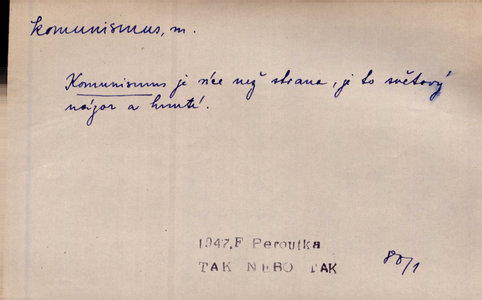 komunismus, m.
Komunismus je více než strana, je to světový
názor a hnutí.
1947, F Peroutka
TAK NEBO TAK
80/1